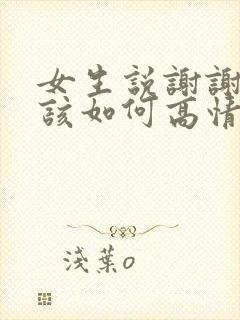 女生説謝謝
該如何高情
淺葉o